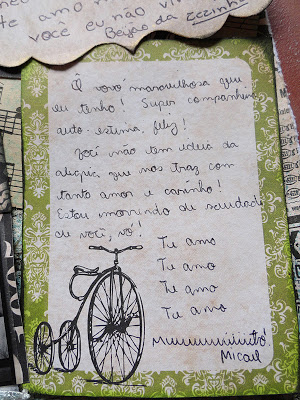 te amo
você eu não vi
Beijão da Zezinha
Ô vovó maravilhosa que
eu tenho! Super companheira
auto-estima, feliz!
Você não tem ideia da
alegria que nos traz com
tanto amor e carinho!
Estou morrendo de saudade
de você, vó!
Te amo
Te amo
Te amo
Te amo
Muuuuuiiiiiitó!
Micael